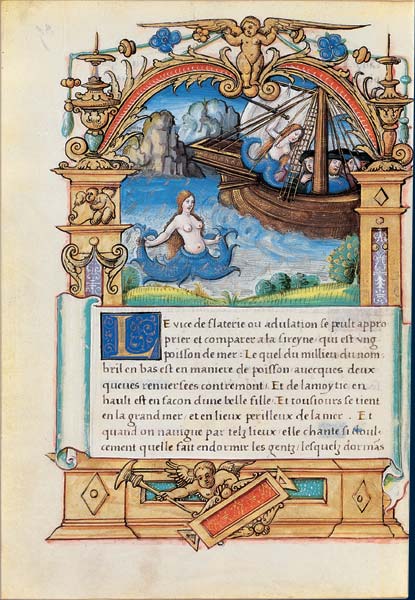 LE vice de flaterie ou adulation se peult appro
prier et comparer a la sireyne, qui est vng
poisson de mer: Le quel du millieu du nom
bril en bas est en maniere de poisson / auecques deux
queues renuersees contremont / Et de lamoytie en
hault est en facon dune belle fille: Et tousiours se tient
en la grand mer, et en lieux perilleux de la mer. Et
quand on nauigue par telz lieux / elle chante si doul-
cement quelle fait endormir les gentz / lesquelz dormãs